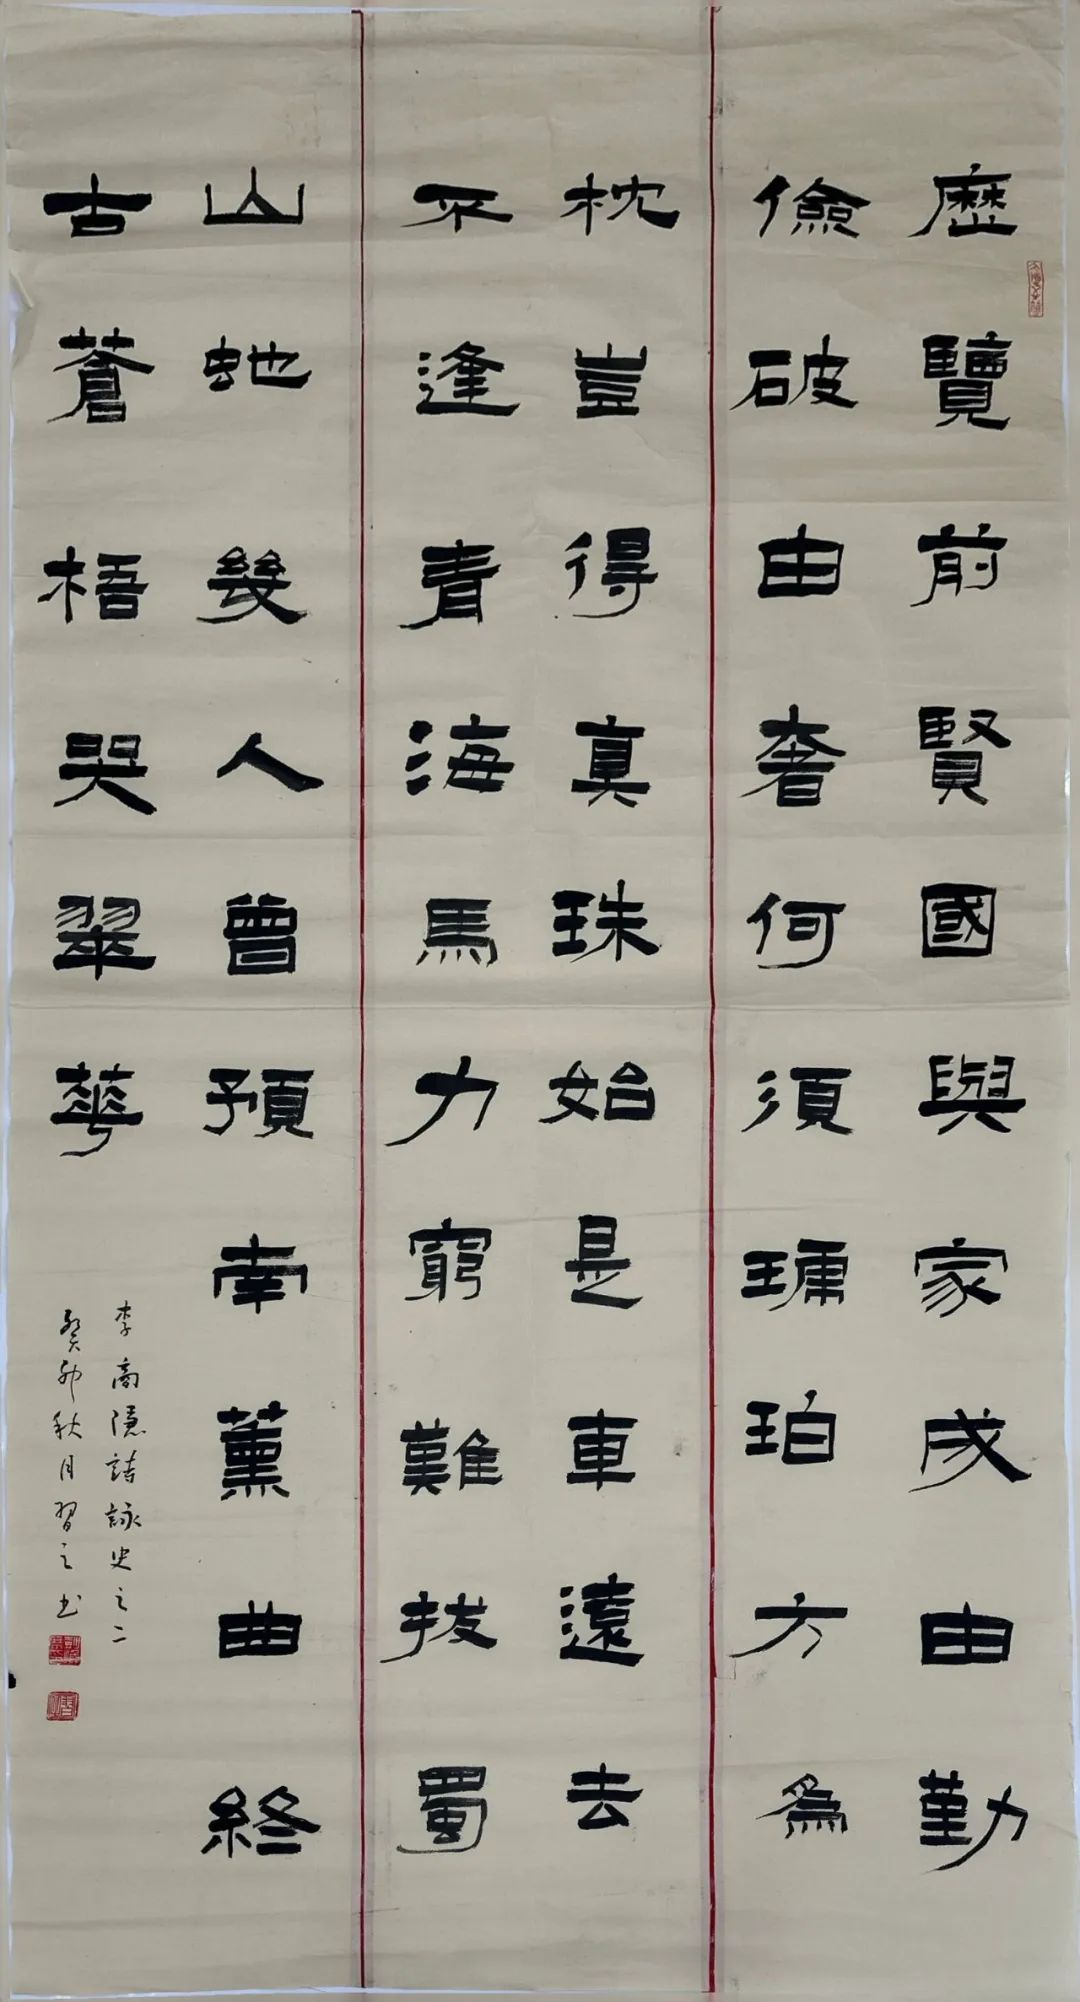 歷覽前賢國與家成由勤
儉破由奢何須琥珀方為
枕豈得真珠始是車遠去
不逢青海馬力窮難拔蜀
山虵幾人曾預南薰曲終
古蒼梧哭翠華
李商隱詩詠史之二
癸卯秋月習之书